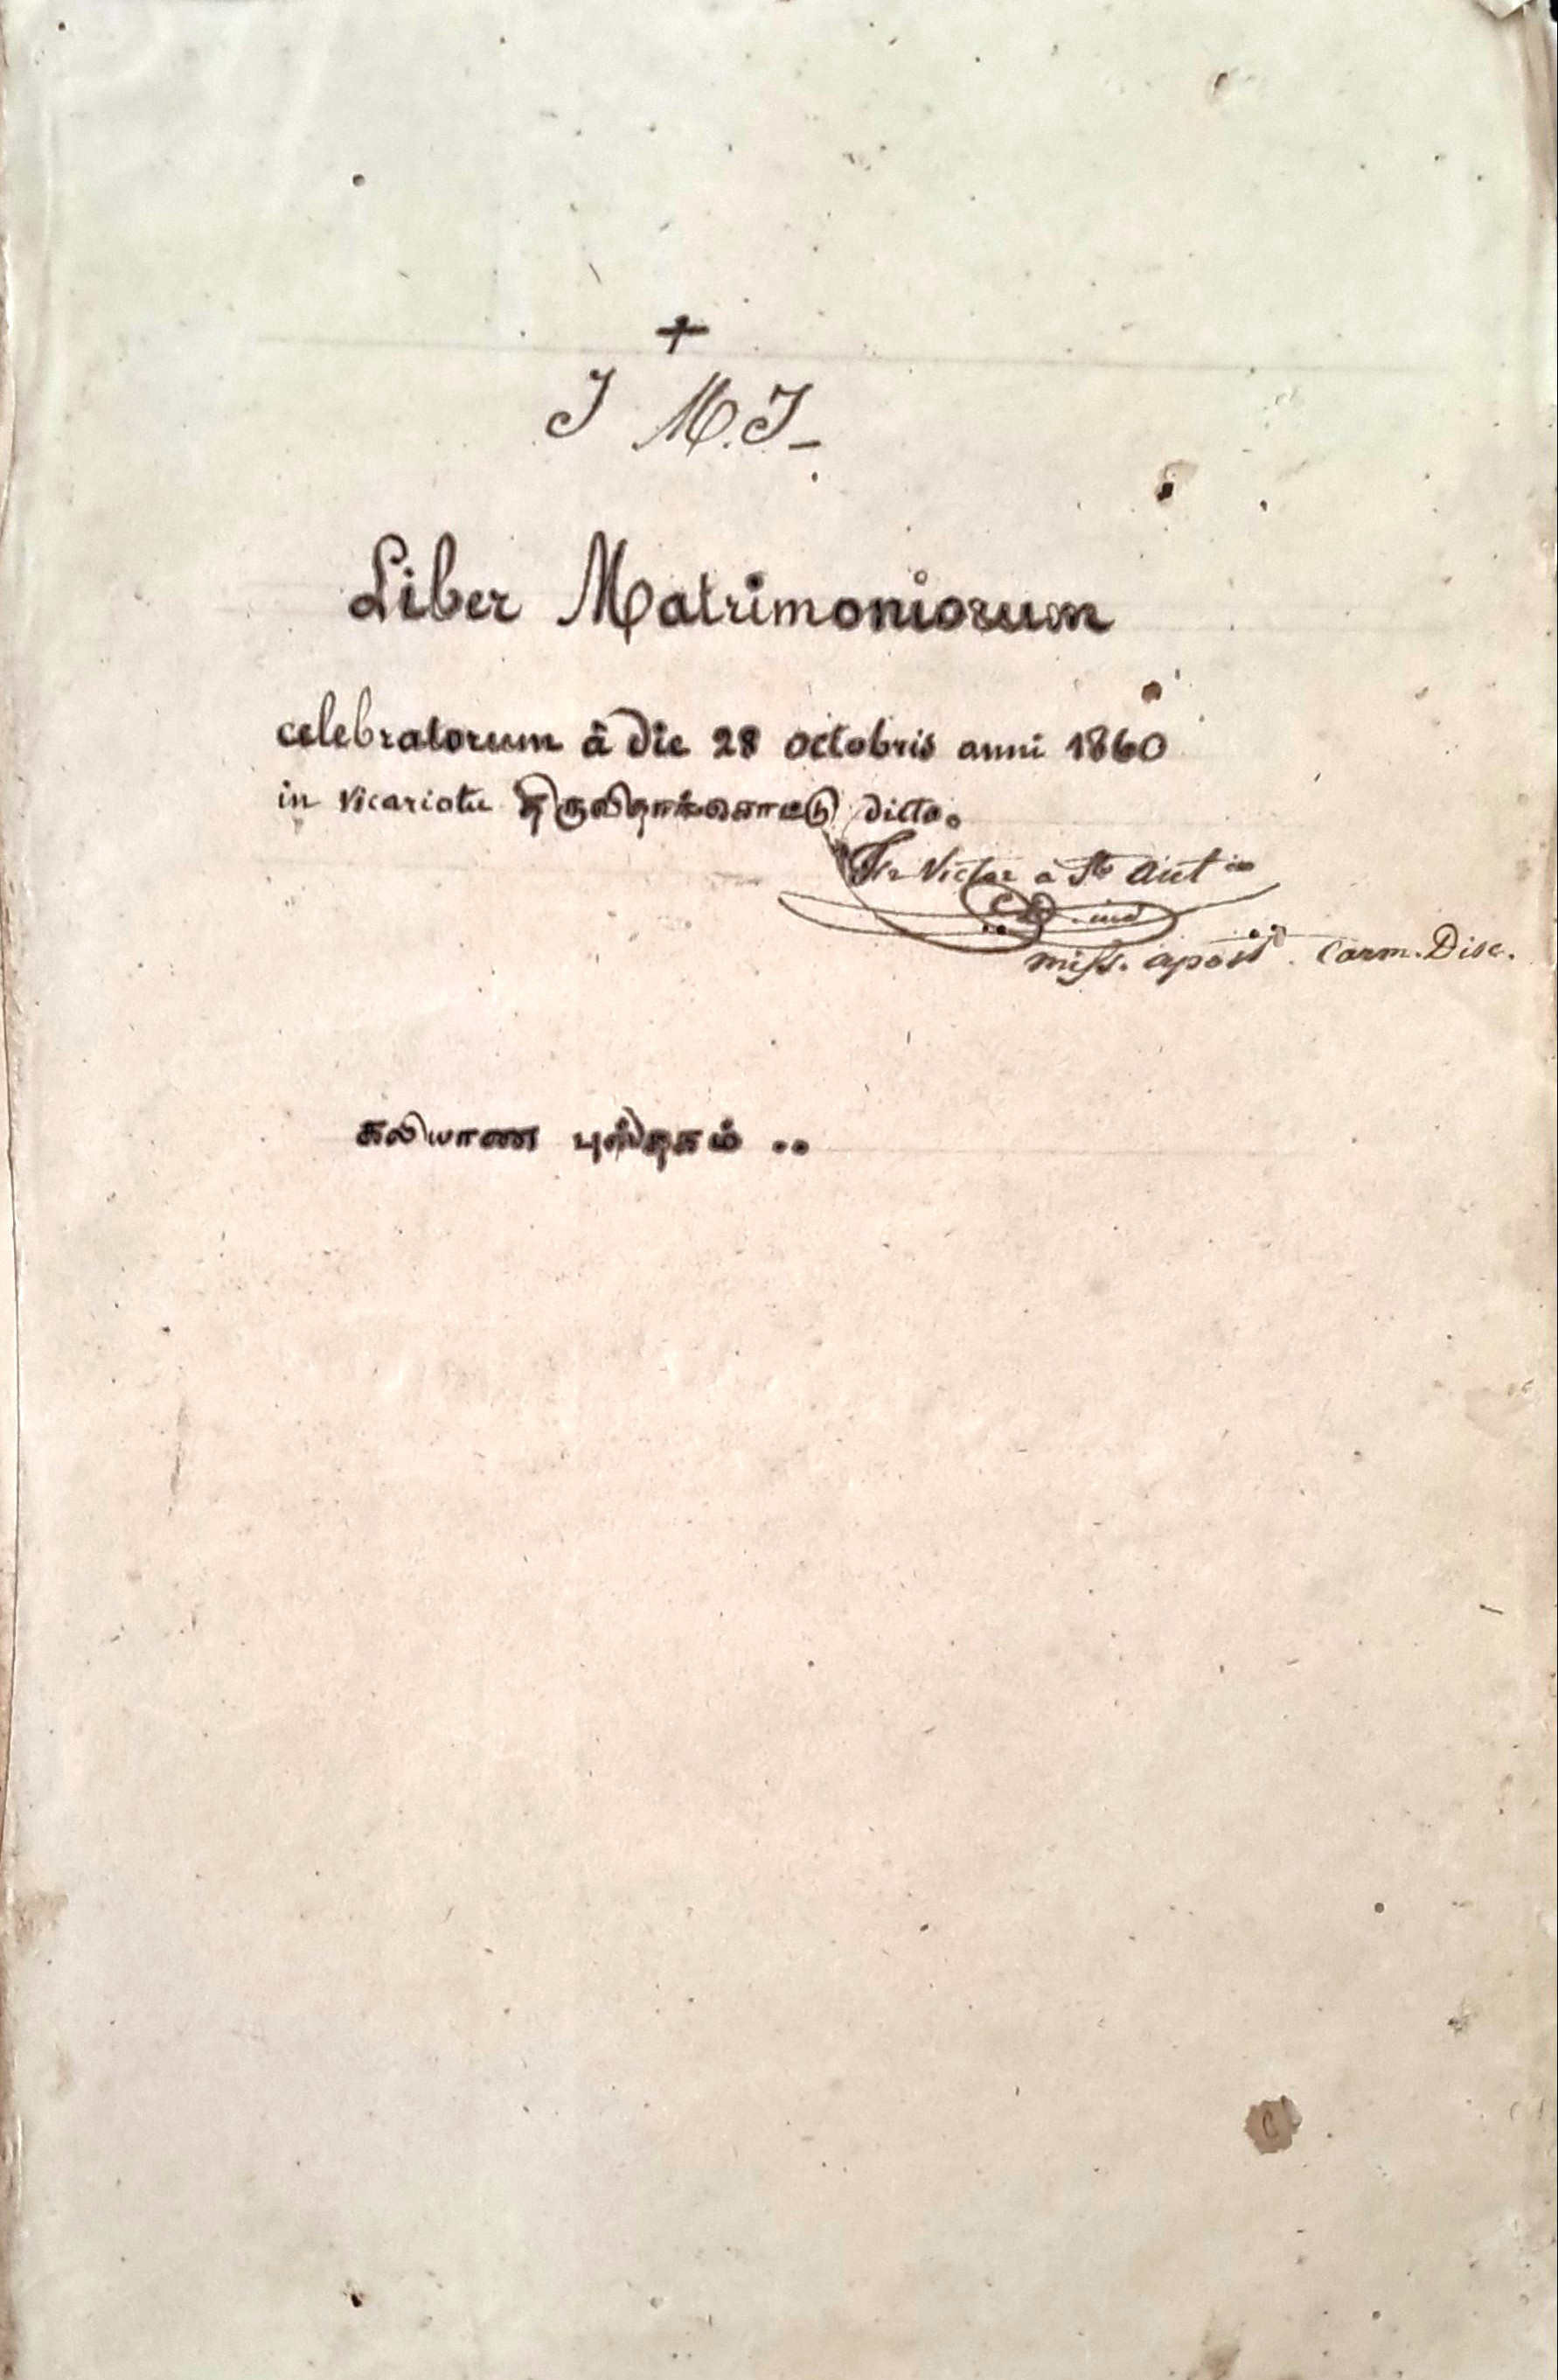 +
J M. J_
Liber Matrimoniorum
celebratorum â die 28 octobris anni 1860
in vicariatu dicto.
Fr Victor à
miss. apost. Carm. Disc.
கலியாண புஸ்தகம் ..